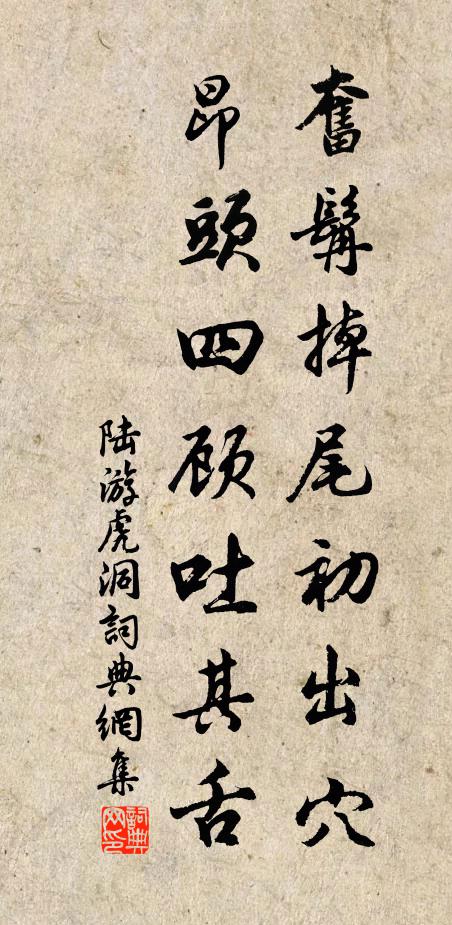 奮髯掉尾初出穴
昂頭四顾吐其舌
陆游虎洞詞典網集
詞典網印